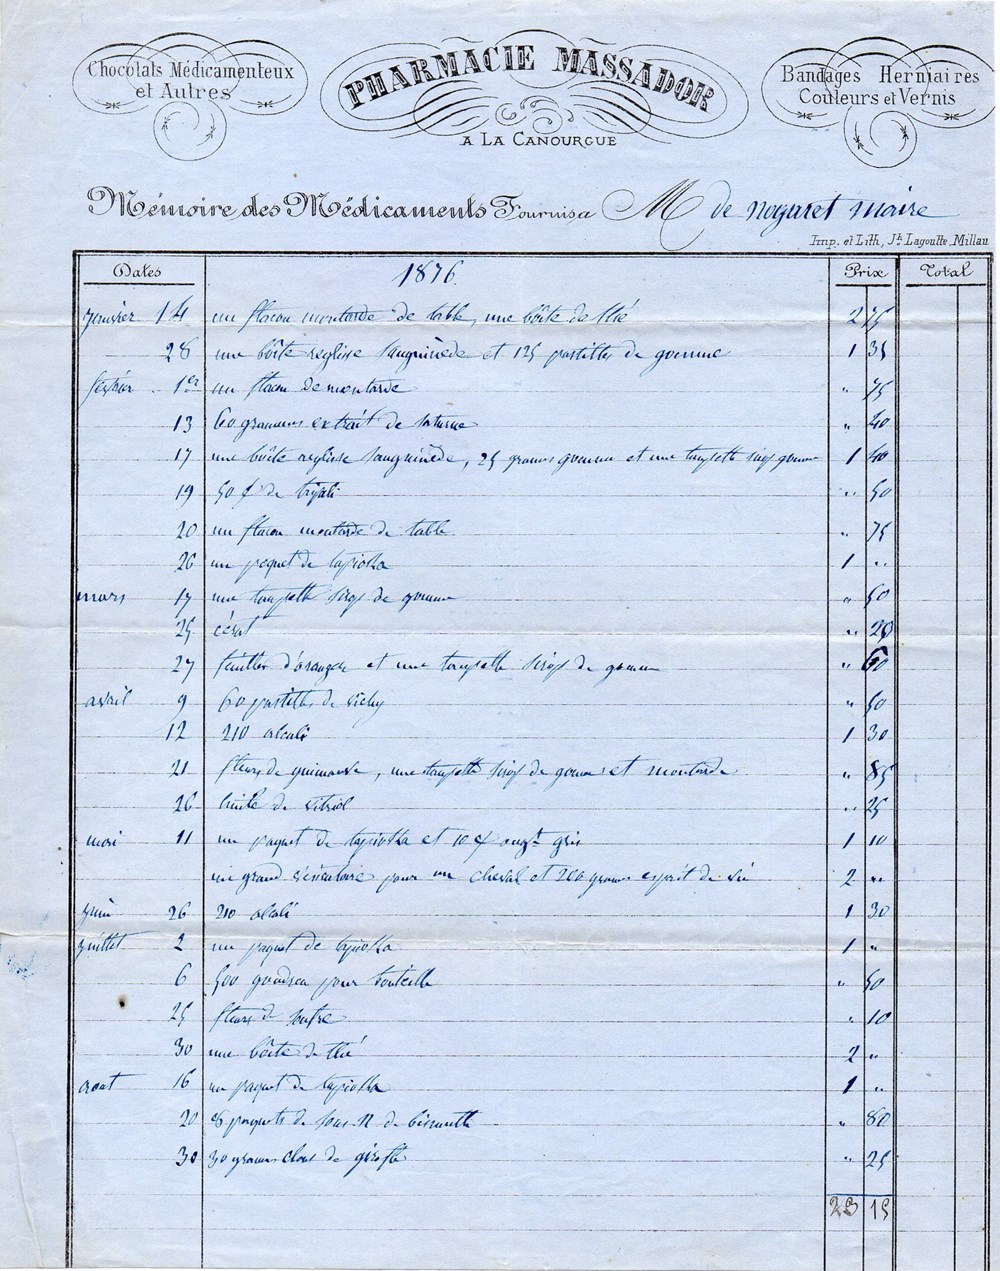 Chocolats Médicamenteux
et Autres
PHARMACIE MASSADOR
A LA CANOURGUE
Bandages Herniaires
Couleurs et Vernis
Mémoire des Médicaments Fournis a M de Nogaret Maire
Imp. et Lith, Jh Lagoutte, Millau
Dates 1876. Prix Total
Janvier 14 un flacon moutarde de table, une bôite de thé 2 75
28 une bôite reglisse sanguinède et 125 pastilles de gomme 1 35
février 1er un flacon de moutarde " 75
13 60 grammes extrait de saturne " 40
17 une bôite reglisse sanguinède, 25 grames gomme et une topette sirop gomme 1 40
19 50 de tripoli " 50
20 un flacon moutarde de table " 75
26 un paquet de tapioka 1 "
mars 17 une topette sirop de gomme " 50
25 cérat " 20
27 feuilles d'oranger et une topette sirop de gomme " 60
avril 9 60 pastilles de vichy " 50
12 210 alcali 1 30
21 fleurs de guimauve, une topette sirop de gomme et moutarde " 85
26 huile de vitriol " 25
mai 11 un paquet de tapioka et 10 ongt gris 1 10
un grand vésicatoire pour un cheval et 200 grames esprit de vin 2 "
Juin 26 210 alcali 1 30
Juillet 2 un paquet de tapioka 1 "
6 500 goudron pour bouteille " 50
25 fleurs de soufre " 10
30 une bôite de thé 2 "
aout 16 un paquet de tapioka 1 "
20 8 paquets de sous N de bismuth " 80
30 30 grames clous de girofle " 25
23 15